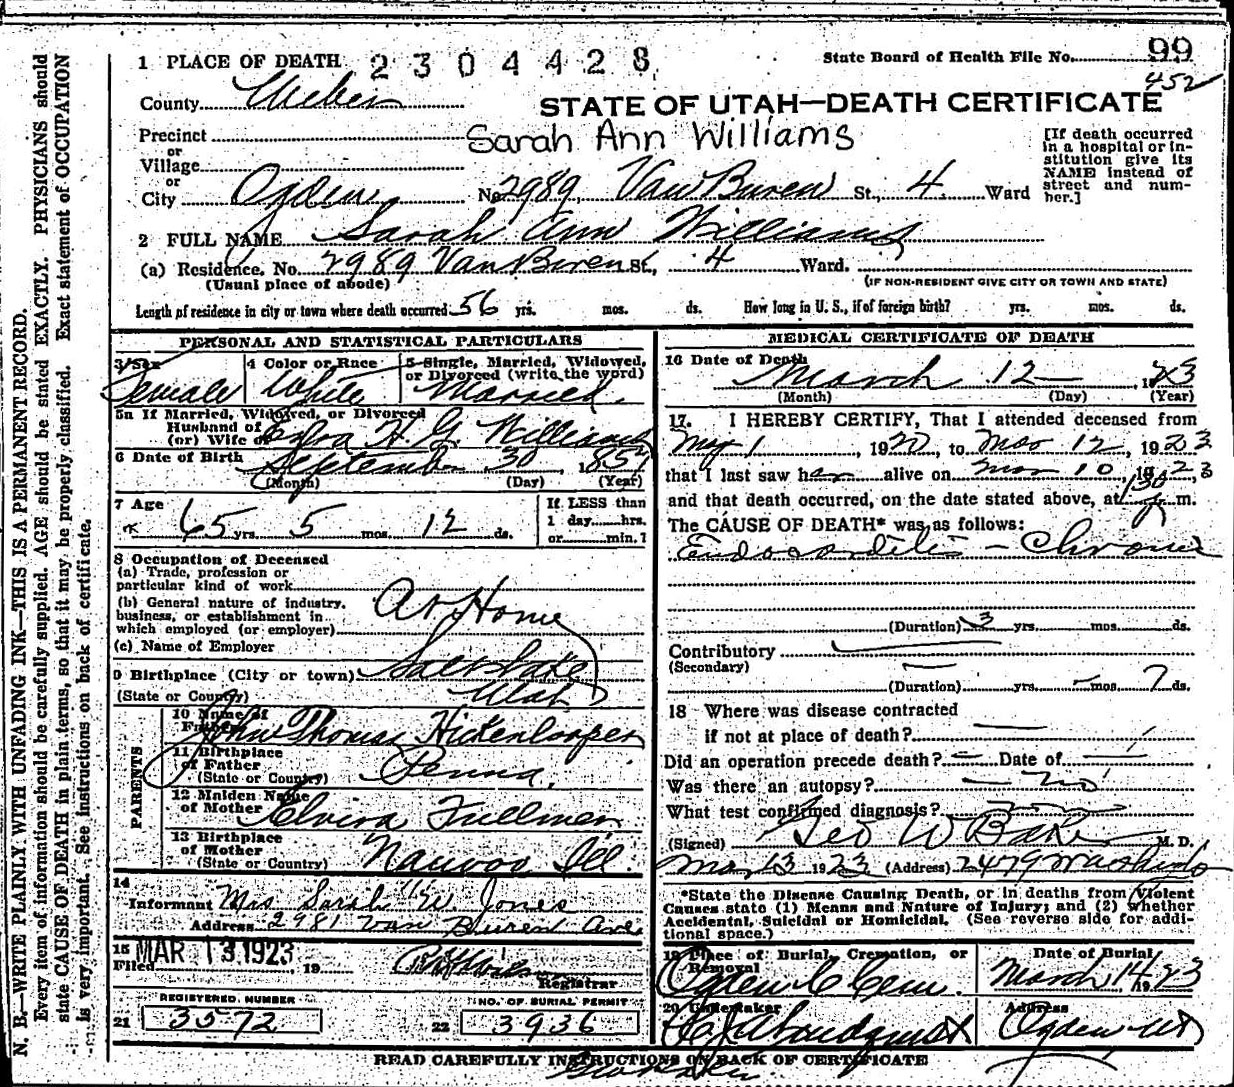 1 PLACE OF DEATH 2304428
State Board of Health File No. 99
452
County Weber
STATE OF UTAH—DEATH CERTIFICATE
Precinct
Sarah Ann Williams
or
Village
or
City Ogden No. 2989, Van Buren St., 4 Ward
[If death occurred
in a hospital or in-
stitution give its
NAME instead of
street and num-
ber.]
2 FULL NAME Sarah Ann Williams
(a) Residence. No. 2989 Van Buren St., 4 Ward.
(Usual place of abode) (IF NON-RESIDENT GIVE CITY OR TOWN AND STATE)
Length of residence in city or town where death occurred 56 yrs. mos. ds. How long in U. S., if of foreign birth? yrs. mos. ds.
PERSONAL AND STATISTICAL PARTICULARS
3 Sex
Female
4 Color or Race
White
5 Single, Married, Widowed,
or Divorced (write the word)
Married.
5a If Married, Widowed, or Divorced
Husband of
(or) Wife of Ezra H. G. Williams
6 Date of Birth September 30, 1857
(Month) (Day) (Year)
7 Age
65 yrs. 5 mos. 12 ds.
If LESS than
1 day......hrs.
or......min.?
8 Occupation of Deceased
(a) Trade, profession or
particular kind of work
At Home
(b) General nature of industry,
business, or establishment in
which employed (or employer)
(c) Name of Employer
9 Birthplace (City or town) Salt Lake
(State or County) Utah
PARENTS
10 Name of
Father John Thomas Hickenlooper
11 Birthplace
of Father
(State or Country) Penna.
12 Maiden Name
of Mother Elvira Fullmer
13 Birthplace
of Mother
(State or Country) Nauvoo Ill.
14
Informant Mrs Sarah E. Jones
Address 2981 Van Buren Ave
15 MAR 13 1923
Filed , 19
Registrar
REGISTERED NUMBER
21 3572
NO. OF BURIAL PERMIT
22 3936
MEDICAL CERTIFICATE OF DEATH
16 Date of Death
March 12— , 1923
(Month) (Day) (Year)
17. I HEREBY CERTIFY, That I attended deceased from
May 1, 1920, to Mar 12, 1923
that I last saw her alive on Mar 10, 1923
and that death occurred, on the date stated above, at 130 P m.
The CAUSE OF DEATH* was as follows:
Endocarditis — Chronic
(Duration) 3 yrs. mos. ds.
Contributory
(Secondary)
(Duration) yrs. — mos. 7 ds.
18 Where was disease contracted
if not at place of death?
Did an operation precede death? — Date of —
Was there an autopsy? — no
What test confirmed diagnosis?
(Signed) Geo W Baker M. D.
Mar 13 1923 (Address) 2479 Washington
*State the Disease Causing Death, or in deaths from Violent
Causes state (1) Means and Nature of Injury; and (2) whether
Accidental, Suicidal or Homicidal. (See reverse side for addi-
tional space.)
19 Place of Burial, Cremation, or
Removal
Ogden C Cem.
Date of Burial
March 14 1923
20 Undertaker
Address
Ogden Ut
READ CAREFULLY INSTRUCTIONS ON BACK OF CERTIFICATE
N. B.—WRITE PLAINLY WITH UNFADING INK—THIS IS A PERMANENT RECORD.
Every item of information should be carefully supplied. AGE should be stated EXACTLY. PHYSICIANS should
state CAUSE OF DEATH in plain terms, so that it may be properly classified. Exact statement of OCCUPATION
is very important. See instructions on back of certificate.